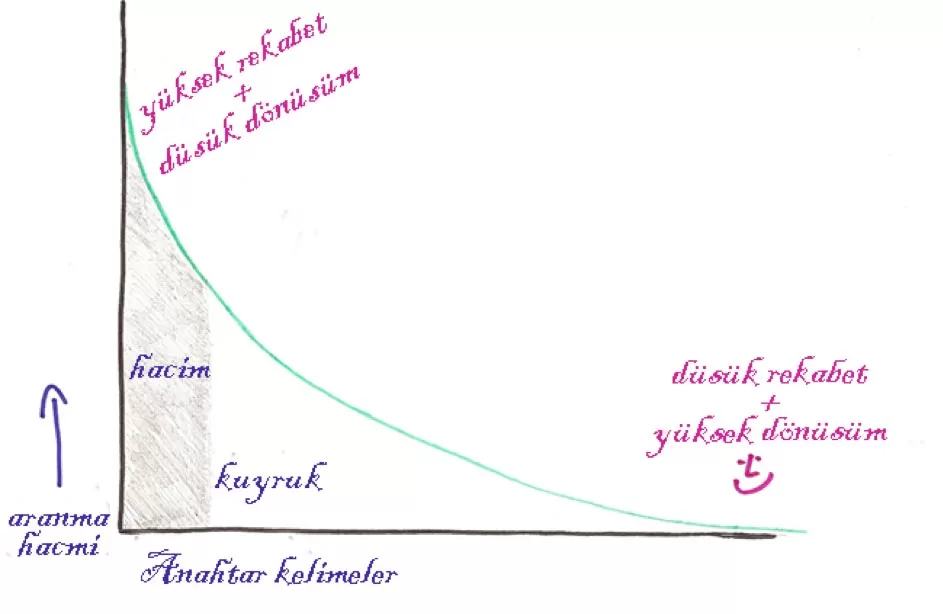 yüksek rekabet
+
düsük dönüsüm
hacim
kuyruk
düsük rekabet
+
yüksek dönüsüm
aranma
hacmi
Anahtar kelimeler